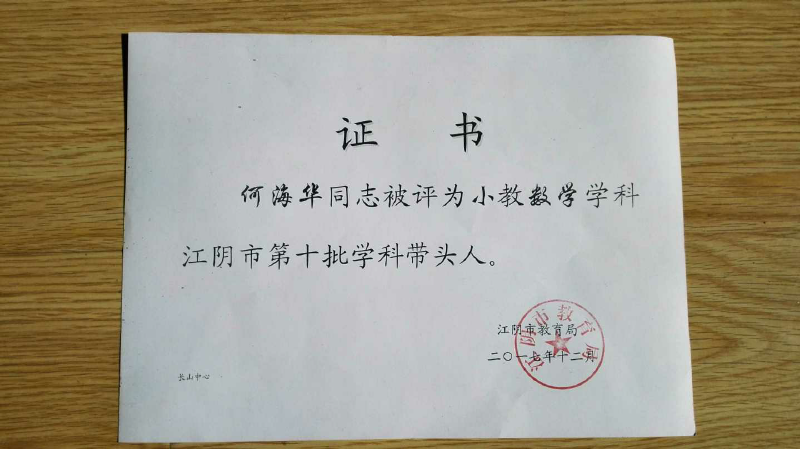 证 书
何海华同志被评为小教数学学科
江阴市第十批学科带头人。
江阴市教育局
二〇一七年十二月
江阴市教育局
长山中心